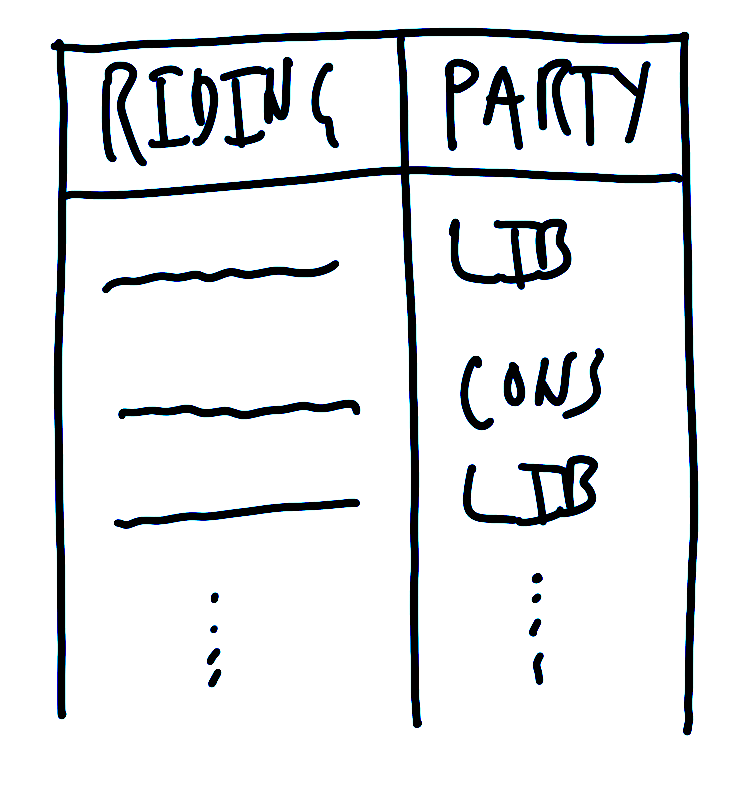 RIDING PARTY
LIB
CONS
LIB